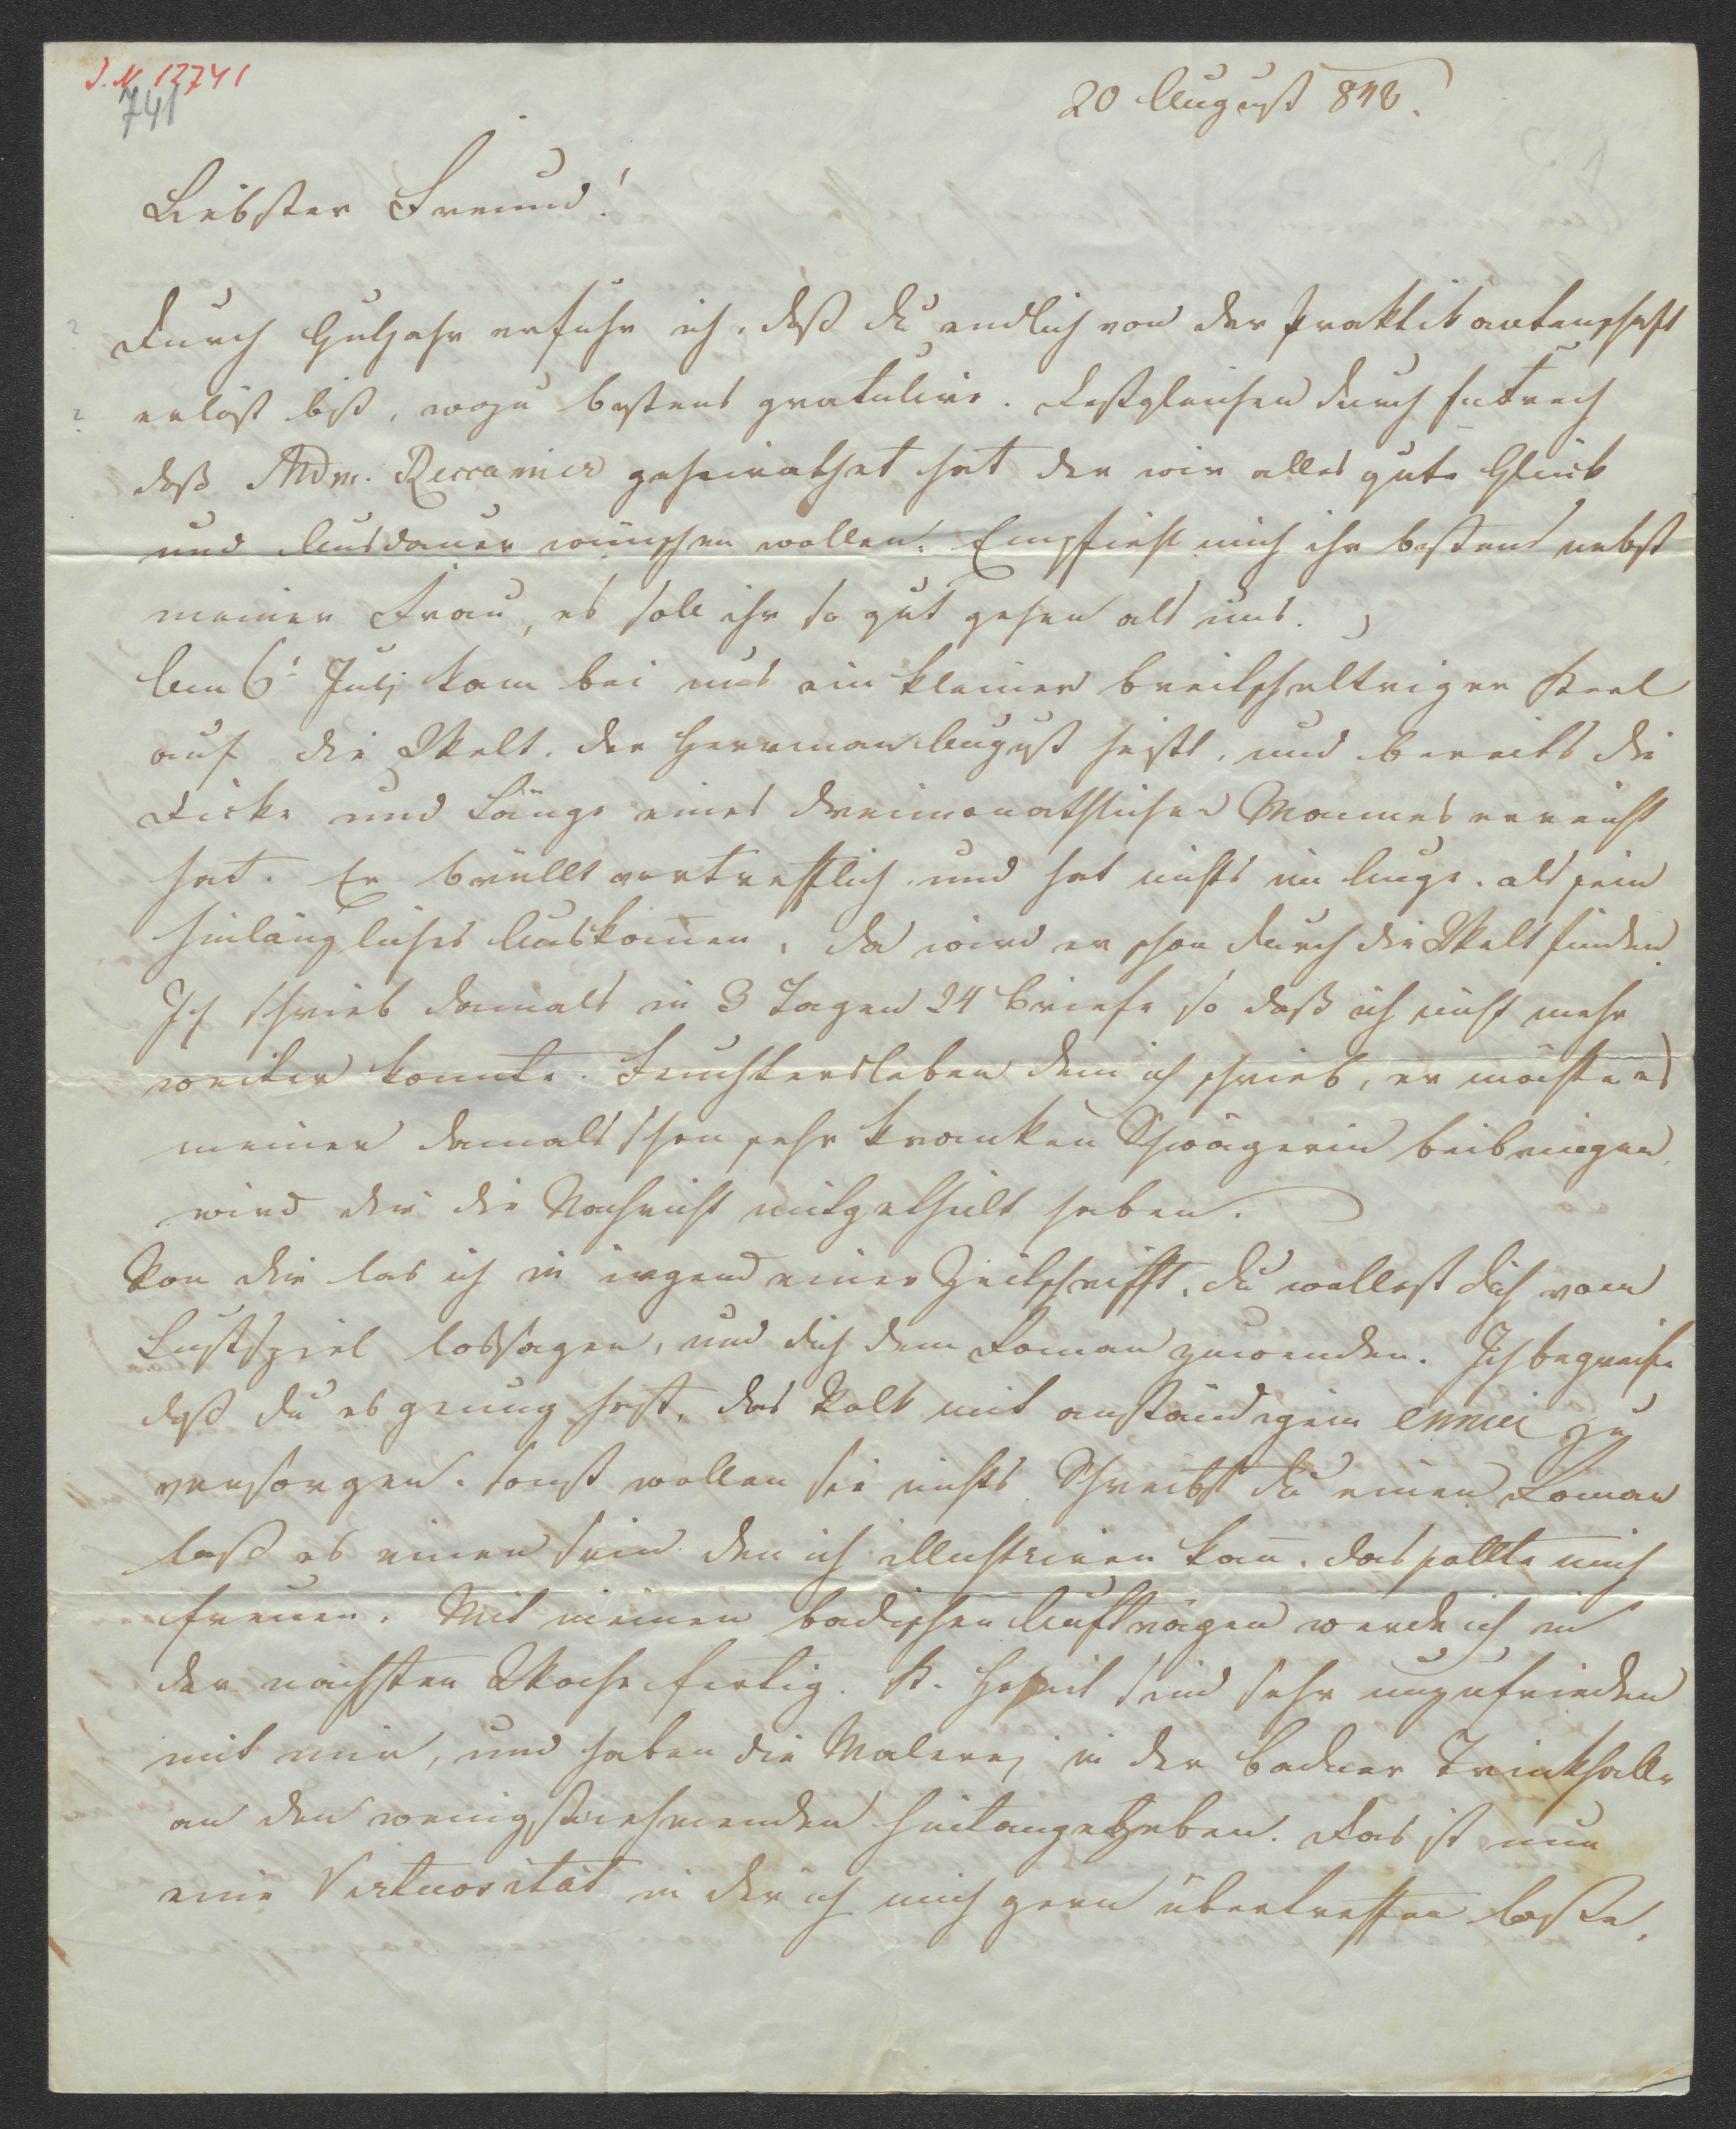 J. N. 12741
741
20 August 843.
Liebster Freund!
Durch Gutjahr erfuhr ich, daß du endlich von der Praktikantenschaft
erlöst bist, wozu bestens gratulire. Deßgleichen durch
daß Mdm. Reccamier geheirathet hat der wir alles gute Glück
und Ausdauer wünschen wollen. Empfiehl mich ihr bestens nebst
meiner Frau, es soll ihr so gut gehen als uns.
Am 6t Julj kam bei uns ein kleiner breitschultriger Kerl
auf die Welt. der Herrman August heißt, und bereits die
Dicke und Länge eines dreimonathlichen Mannes erreicht
hat. Er brüllt vortrefflich und hat nichts im Auge. als sein
hinlängliches Auskom̅en, da wird er schon durch die Welt finden.
Ich schrieb damals in 3 Tagen 24 Briefe so daß ich nicht mehr
weiter konnte. Feuchtersleben dem ich schrieb, er möchte es
meiner damals schon sehr kranken Schwägerin beibringen,
wird dir die Nachricht mitgetheilt haben.
Von dir las ich in irgend einer Zeitschrifft, du wollest dich vom
Lustspiel lossagen, und dich dem Roman zuwenden. Ich begreife
daß du es genug hast, das Volk mit anständigem ennui zu
versorgen. sonst wollen sie nichts. Schreibst du einen Roman
laß es einen sein den ich illustriren kan̅. das sollte mich
freuen. Mit meinen badischen Aufträgen werde ich in
der nächsten Woche fertig. K. Hoheit sind sehr unzufrieden
mit mir, und haben die Malerej in der Badner Trinkhalle
an den wenigstnehmenden hintangegeben. Das ist nun
eine Virtuosität in der ich mich gern übertreffen laße.